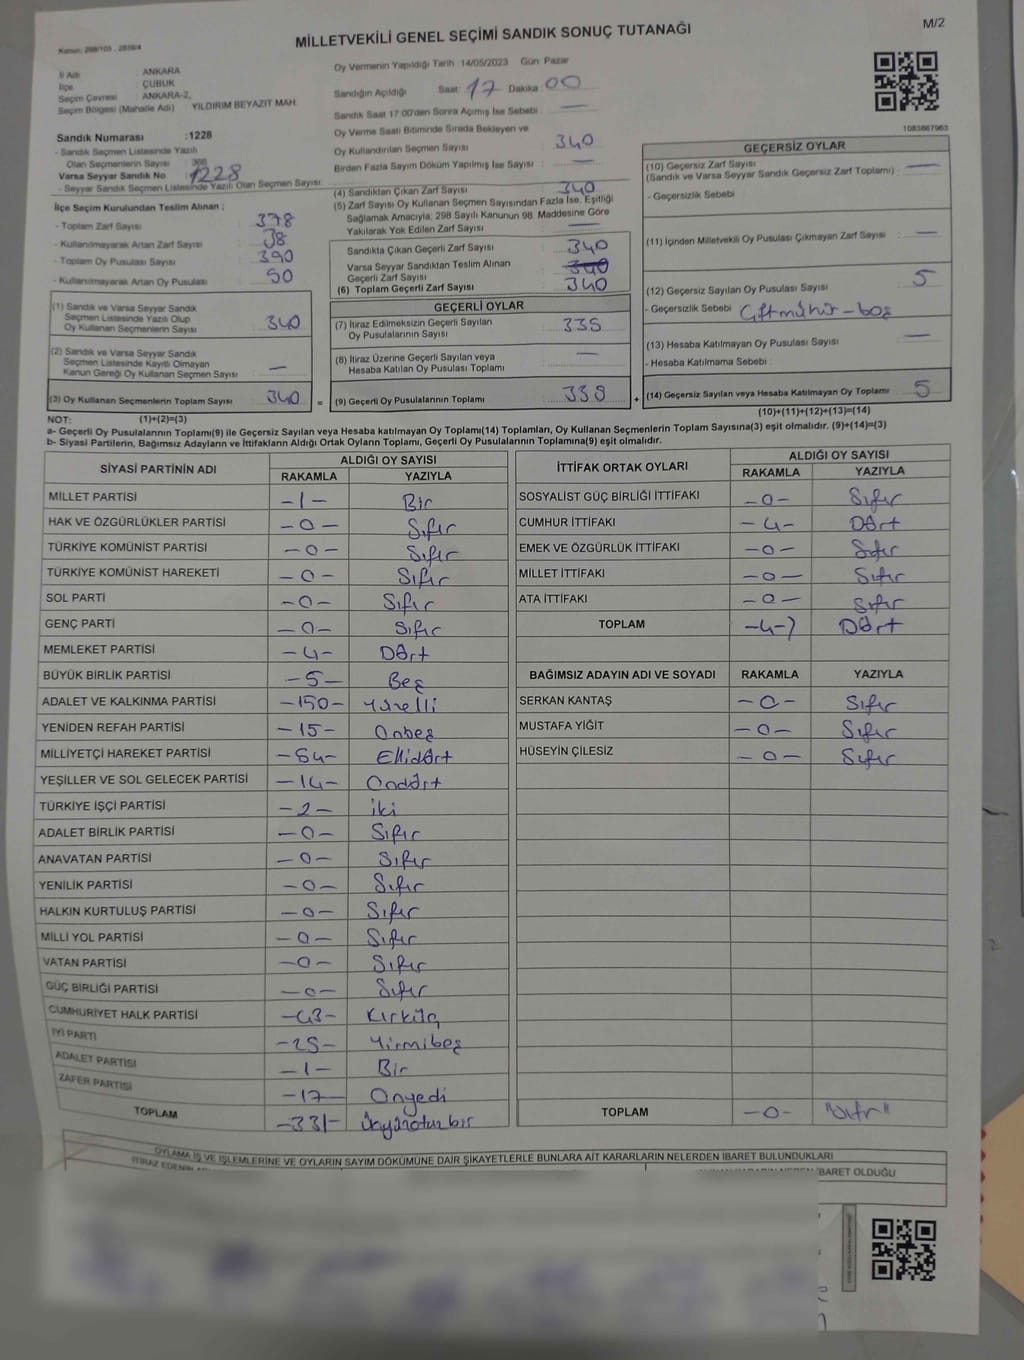 M/2
MİLLETVEKİLİ GENEL SEÇİMİ SANDIK SONUÇ TUTANAĞI
Kanun: 298/105 , 2839/4
İl Adı : ANKARA
İlçe : ÇUBUK
Seçim Çevresi : ANKARA-2,
Seçim Bölgesi (Mahalle Adı) : YILDIRIM BEYAZIT MAH.
Sandık Numarası :1228
- Sandık Seçmen Listesinde Yazılı
Olan Seçmenlerin Sayısı :
Varsa Seyyar Sandık No 1228
- Seyyar Sandık Seçmen Listesinde Yazılı Olan Seçmen Sayısı:
İlçe Seçim Kurulundan Teslim Alınan ;
- Toplam Zarf Sayısı : 378
- Kullanılmayarak Artan Zarf Sayısı : 38
- Toplam Oy Pusulası Sayısı : 390
- Kullanılmayarak Artan Oy Pusulası : 50
(1) Sandık ve Varsa Seyyar Sandık
Seçmen Listesinde Yazılı Olup
Oy Kullanan Seçmenlerin Sayısı : 340
(2) Sandık ve Varsa Seyyar Sandık
Seçmen Listesinde Kayıtlı Olmayan
Kanun Gereği Oy Kullanan Seçmen Sayısı : —
(3) Oy Kullanan Seçmenlerin Toplam Sayısı : 340 =
Oy Vermenin Yapıldığı Tarih :14/05/2023 Gün: Pazar
Sandığın Açıldığı Saat: 17 Dakika : 00
Sandık Saat 17:00'den Sonra Açılmış İse Sebebi : —
Oy Verme Saati Bitiminde Sırada Bekleyen ve
Oy Kullandırılan Seçmen Sayısı : 340
Birden Fazla Sayım Döküm Yapılmış İse Sayısı : —
(4) Sandıktan Çıkan Zarf Sayısı : 340
(5) Zarf Sayısı Oy Kullanan Seçmen Sayısından Fazla İse, Eşitliği
Sağlamak Amacıyla, 298 Sayılı Kanunun 98. Maddesine Göre
Yakılarak Yok Edilen Zarf Sayısı : —
Sandıkta Çıkan Geçerli Zarf Sayısı : 340
Varsa Seyyar Sandıktan Teslim Alınan
Geçerli Zarf Sayısı : 340
(6) Toplam Geçerli Zarf Sayısı : 340
GEÇERLİ OYLAR
(7) İtiraz Edilmeksizin Geçerli Sayılan
Oy Pusulalarının Sayısı : 335
(8) İtiraz Üzerine Geçerli Sayılan veya
Hesaba Katılan Oy Pusulası Toplamı : —
(9) Geçerli Oy Pusulalarının Toplamı : 335 +
1083867963
GEÇERSİZ OYLAR
(10) Geçersiz Zarf Sayısı
(Sandık ve Varsa Seyyar Sandık Geçersiz Zarf Toplamı) : —
- Geçersizlik Sebebi :
(11) İçinden Milletvekili Oy Pusulası Çıkmayan Zarf Sayısı : —
(12) Geçersiz Sayılan Oy Pusulası Sayısı : 5
- Geçersizlik Sebebi : Çift mühür - boş
(13) Hesaba Katılmayan Oy Pusulası Sayısı : —
- Hesaba Katılmama Sebebi :
(14) Geçersiz Sayılan veya Hesaba Katılmayan Oy Toplamı : 5
(10)+(11)+(12)+(13)=(14)
NOT: (1)+(2)=(3)
a- Geçerli Oy Pusulalarının Toplamı(9) ile Geçersiz Sayılan veya Hesaba katılmayan Oy Toplamı(14) Toplamları, Oy Kullanan Seçmenlerin Toplam Sayısına(3) eşit olmalıdır. (9)+(14)=(3)
b- Siyasi Partilerin, Bağımsız Adayların ve İttifakların Aldığı Ortak Oyların Toplamı, Geçerli Oy Pusulalarının Toplamına(9) eşit olmalıdır.
SİYASİ PARTİNİN ADI ALDIĞI OY SAYISI
RAKAMLA YAZIYLA
MİLLET PARTİSİ -1- Bir
HAK VE ÖZGÜRLÜKLER PARTİSİ -0- Sıfır
TÜRKİYE KOMÜNİST PARTİSİ -0- Sıfır
TÜRKİYE KOMÜNİST HAREKETİ -0- Sıfır
SOL PARTİ -0- Sıfır
GENÇ PARTİ -0- Sıfır
MEMLEKET PARTİSİ -4- Dört
BÜYÜK BİRLİK PARTİSİ -5- Beş
ADALET VE KALKINMA PARTİSİ -150- Yüzelli
YENİDEN REFAH PARTİSİ -15- Onbeş
MİLLİYETÇİ HAREKET PARTİSİ -54- Ellidört
YEŞİLLER VE SOL GELECEK PARTİSİ -14- Ondört
TÜRKİYE İŞÇİ PARTİSİ -2- iki
ADALET BİRLİK PARTİSİ -0- Sıfır
ANAVATAN PARTİSİ -0- Sıfır
YENİLİK PARTİSİ -0- Sıfır
HALKIN KURTULUŞ PARTİSİ -0- Sıfır
MİLLİ YOL PARTİSİ -0- Sıfır
VATAN PARTİSİ -0- Sıfır
GÜÇ BİRLİĞİ PARTİSİ -0- Sıfır
CUMHURİYET HALK PARTİSİ -43- Kırküç
İYİ PARTİ -25- Yirmibeş
ADALET PARTİSİ -1- Bir
ZAFER PARTİSİ -17- Onyedi
TOPLAM -331- Üçyüzotuzbir
İTTİFAK ORTAK OYLARI ALDIĞI OY SAYISI
RAKAMLA YAZIYLA
SOSYALİST GÜÇ BİRLİĞİ İTTİFAKI -0- Sıfır
CUMHUR İTTİFAKI -4- Dört
EMEK VE ÖZGÜRLÜK İTTİFAKI -0- Sıfır
MİLLET İTTİFAKI -0- Sıfır
ATA İTTİFAKI -0- Sıfır
TOPLAM -4- Dört
BAĞIMSIZ ADAYIN ADI VE SOYADI RAKAMLA YAZIYLA
SERKAN KANTAŞ -0- Sıfır
MUSTAFA YİĞİT -0- Sıfır
HÜSEYİN ÇİLESİZ -0- Sıfır
TOPLAM -0- "Sıfır"
OYLAMA İŞ VE İŞLEMLERİNE VE OYLARIN SAYIM DÖKÜMÜNE DAİR ŞİKAYETLERLE BUNLARA AİT KARARLARIN NELERDEN İBARET BULUNDUKLARI
İTİRAZ EDENİN
İBARET OLDUĞU